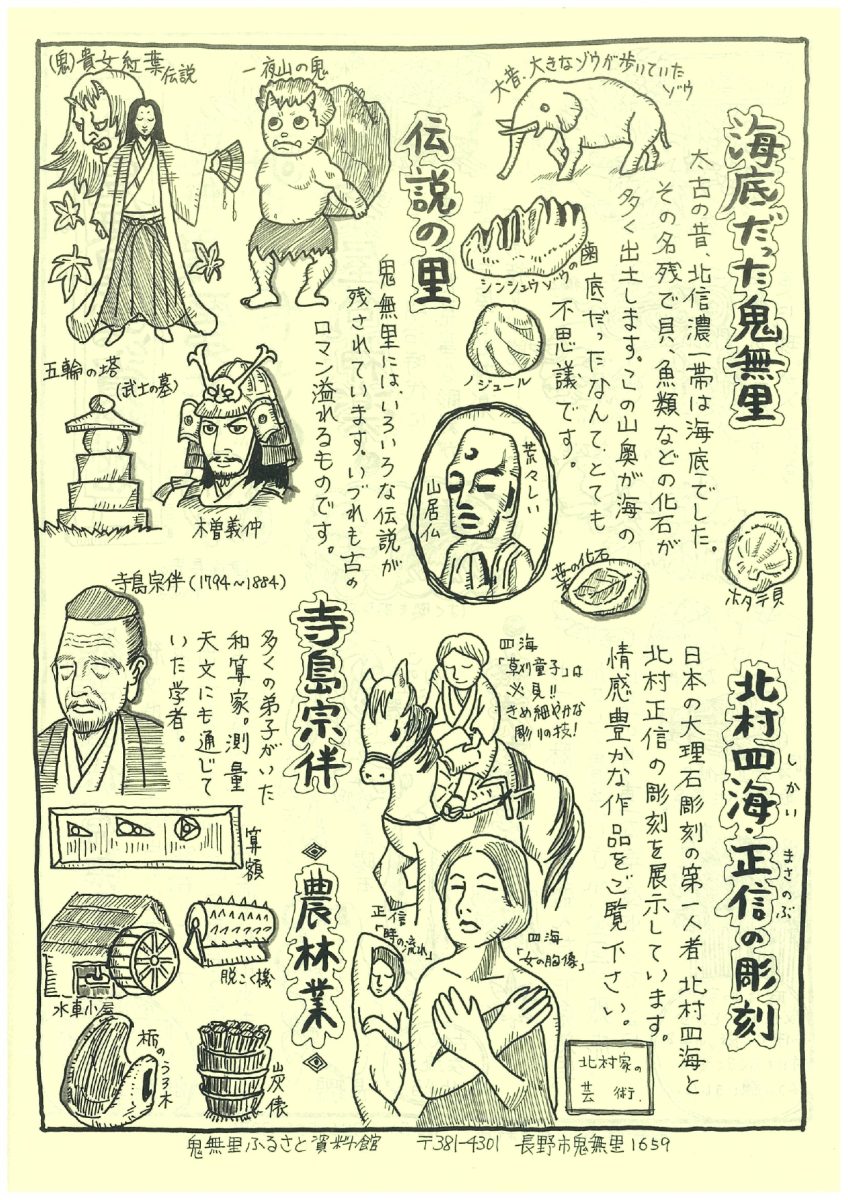 海底だった鬼無里
太古の昔、北信濃一帯は海底でした。
その名残で貝、魚類などの化石が
多く出土します。この山奥が海の
底だったなんて、とても
不思議です。
大昔、大きなゾウが歩いていた
ゾウ
シンシュウゾウの
歯
ノジュール
荒々しい
山居仏
葉の化石
ホタテ貝
伝説の里
鬼無里には、いろいろな伝説が
残されています。いづれも古の
ロマン溢れるものです。
一夜山の鬼
(鬼)貴女紅葉伝説
五輪の塔
(武士の墓)
木曽義仲
北村四海・正信の彫刻
しかい
まさのぶ
日本の大理石彫刻の第一人者、北村四海と
北村正信の彫刻を展示しています。
情感豊かな作品をご覧下さい。
四海
「草刈童子」は
必見!!
きめ細やかな
彫りの技!
正信
「時の流れ」
四海
「女の胸像」
北村家の
芸術.
寺島宗伴
寺島宗伴(1794~1884)
多くの弟子がいた
和算家。測量
天文にも通じて
いた学者。
算額
農林業
水車小屋
脱こく機
栃のうろ木
炭俵
鬼無里ふるさと資料館 〒381-4301 長野市鬼無里1659